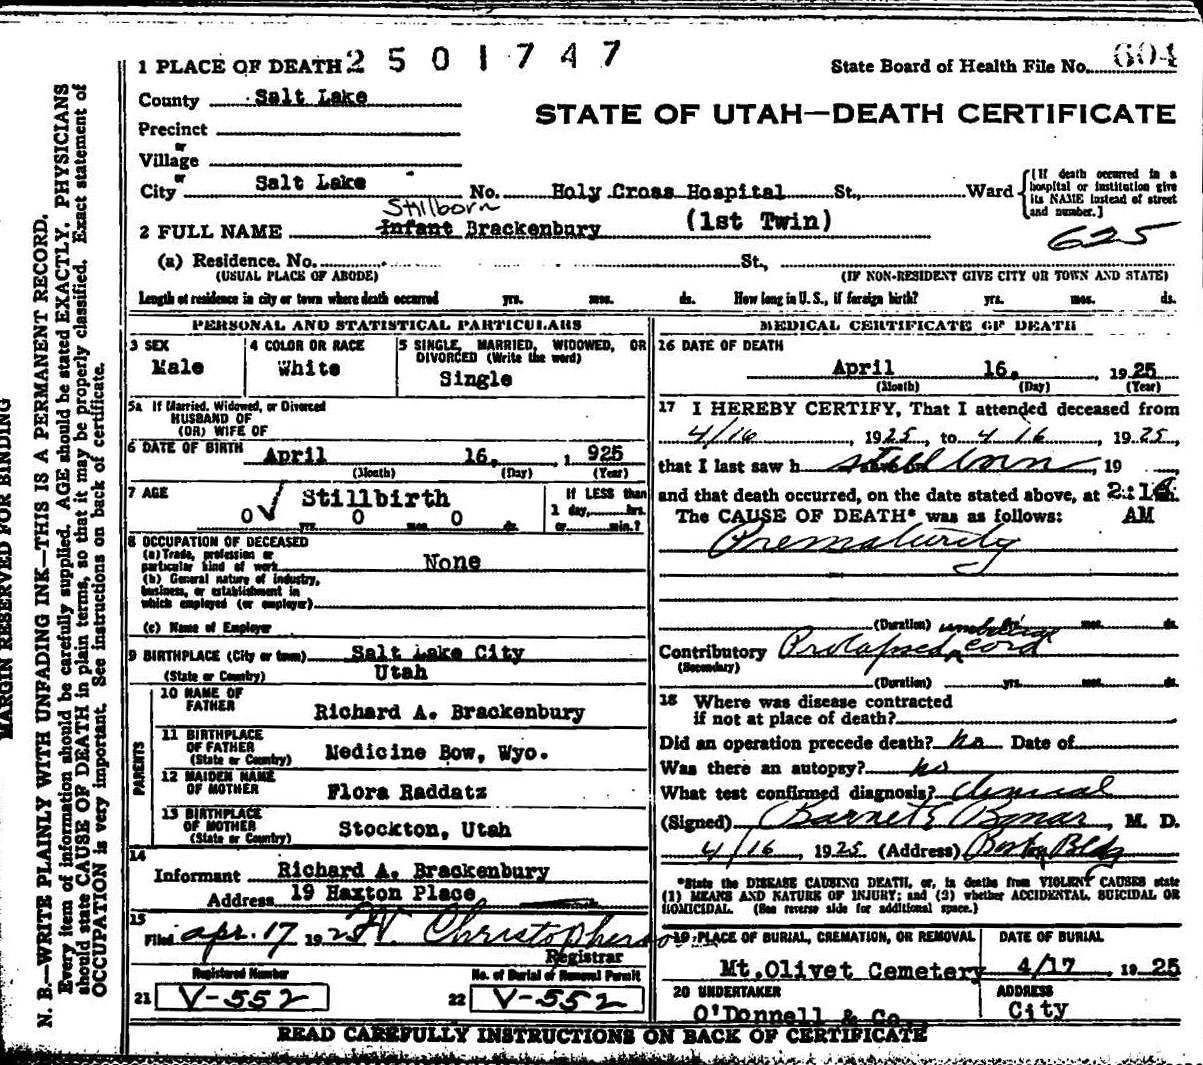 MARGIN RESERVED FOR BINDING
N. B.—WRITE PLAINLY WITH UNFADING INK—THIS IS A PERMANENT RECORD.
Every item of information should be carefully supplied. AGE should be stated EXACTLY. PHYSICIANS
should state CAUSE OF DEATH in plain terms, so that it may be properly classified. Exact statement of
OCCUPATION is very important. See instructions on back of certificate.
1 PLACE OF DEATH 2 5 0 1 7 4 7
State Board of Health File No. 604
County Salt Lake
STATE OF UTAH—DEATH CERTIFICATE
Precinct
or
Village
or
City Salt Lake No. Holy Cross Hospital St., Ward
[If death occurred in a
hospital or institution give
its NAME instead of street
and number.]
Stilborn
2 FULL NAME Infant Brackenbury (1st Twin)
625
(a) Residence. No. St.,
(USUAL PLACE OF ABODE) (IF NON-RESIDENT GIVE CITY OR TOWN AND STATE)
Length of residence in city or town where death occurred yrs. mos. ds. How long in U. S., if foreign birth? yrs. mos. ds.
PERSONAL AND STATISTICAL PARTICULARS
3 SEX
Male
4 COLOR OR RACE
White
5 SINGLE, MARRIED, WIDOWED, OR
DIVORCED (Write the word)
Single
5a If Married, Widowed, or Divorced
HUSBAND OF
(OR) WIFE OF
6 DATE OF BIRTH April 16, 1 925
(Month) (Day) (Year)
7 AGE Stillbirth
0 yrs. 0 mos. 0 ds.
If LESS than
1 day, hrs.
or min.?
8 OCCUPATION OF DECEASED
(a) Trade, profession or
particular kind of work None
(b) General nature of industry,
business, or establishment in
which employed (or employer)
(c) Name of Employer
9 BIRTHPLACE (City or town) Salt Lake City
(State or Country) Utah
PARENTS
10 NAME OF
FATHER Richard A. Brackenbury
11 BIRTHPLACE
OF FATHER
(State or Country) Medicine Bow, Wyo.
12 MAIDEN NAME
OF MOTHER Flora Raddatz
13 BIRTHPLACE
OF MOTHER
(State or Country) Stockton, Utah
14
Informant Richard A. Brackenbury
Address 19 Haxton Place
15
Filed Apr. 17 1925 Christopherson
Registrar
Registered Number No. of Burial or Removal Permit
21 V-552 22 V-552
MEDICAL CERTIFICATE OF DEATH
16 DATE OF DEATH
April 16, 1925
(Month) (Day) (Year)
17 I HEREBY CERTIFY, That I attended deceased from
4/16, 1925, to 4 16, 1925,
that I last saw h stillborn, 19
and that death occurred, on the date stated above, at
AM
The CAUSE OF DEATH* was as follows:
Prematurity
(Duration) mos. ds.
umbilical
Contributory Prolapsed cord
(Secondary)
(Duration) yrs. mos. ds.
18 Where was disease contracted
if not at place of death?
Did an operation precede death? no Date of
Was there an autopsy? no
What test confirmed diagnosis? clinical
(Signed) Barnet E Bonar, M. D.
4/16, 1925 (Address) Boston Bldg
*State the DISEASE CAUSING DEATH, or, in deaths from VIOLENT CAUSES state
(1) MEANS AND NATURE OF INJURY; and (2) whether ACCIDENTAL, SUICIDAL OR
HOMICIDAL. (See reverse side for additional space.)
19 PLACE OF BURIAL, CREMATION, OR REMOVAL DATE OF BURIAL
Mt. Olivet Cemetery 4/17, 1925
20 UNDERTAKER ADDRESS
O'Donnell & Co. City
READ CAREFULLY INSTRUCTIONS ON BACK OF CERTIFICATE